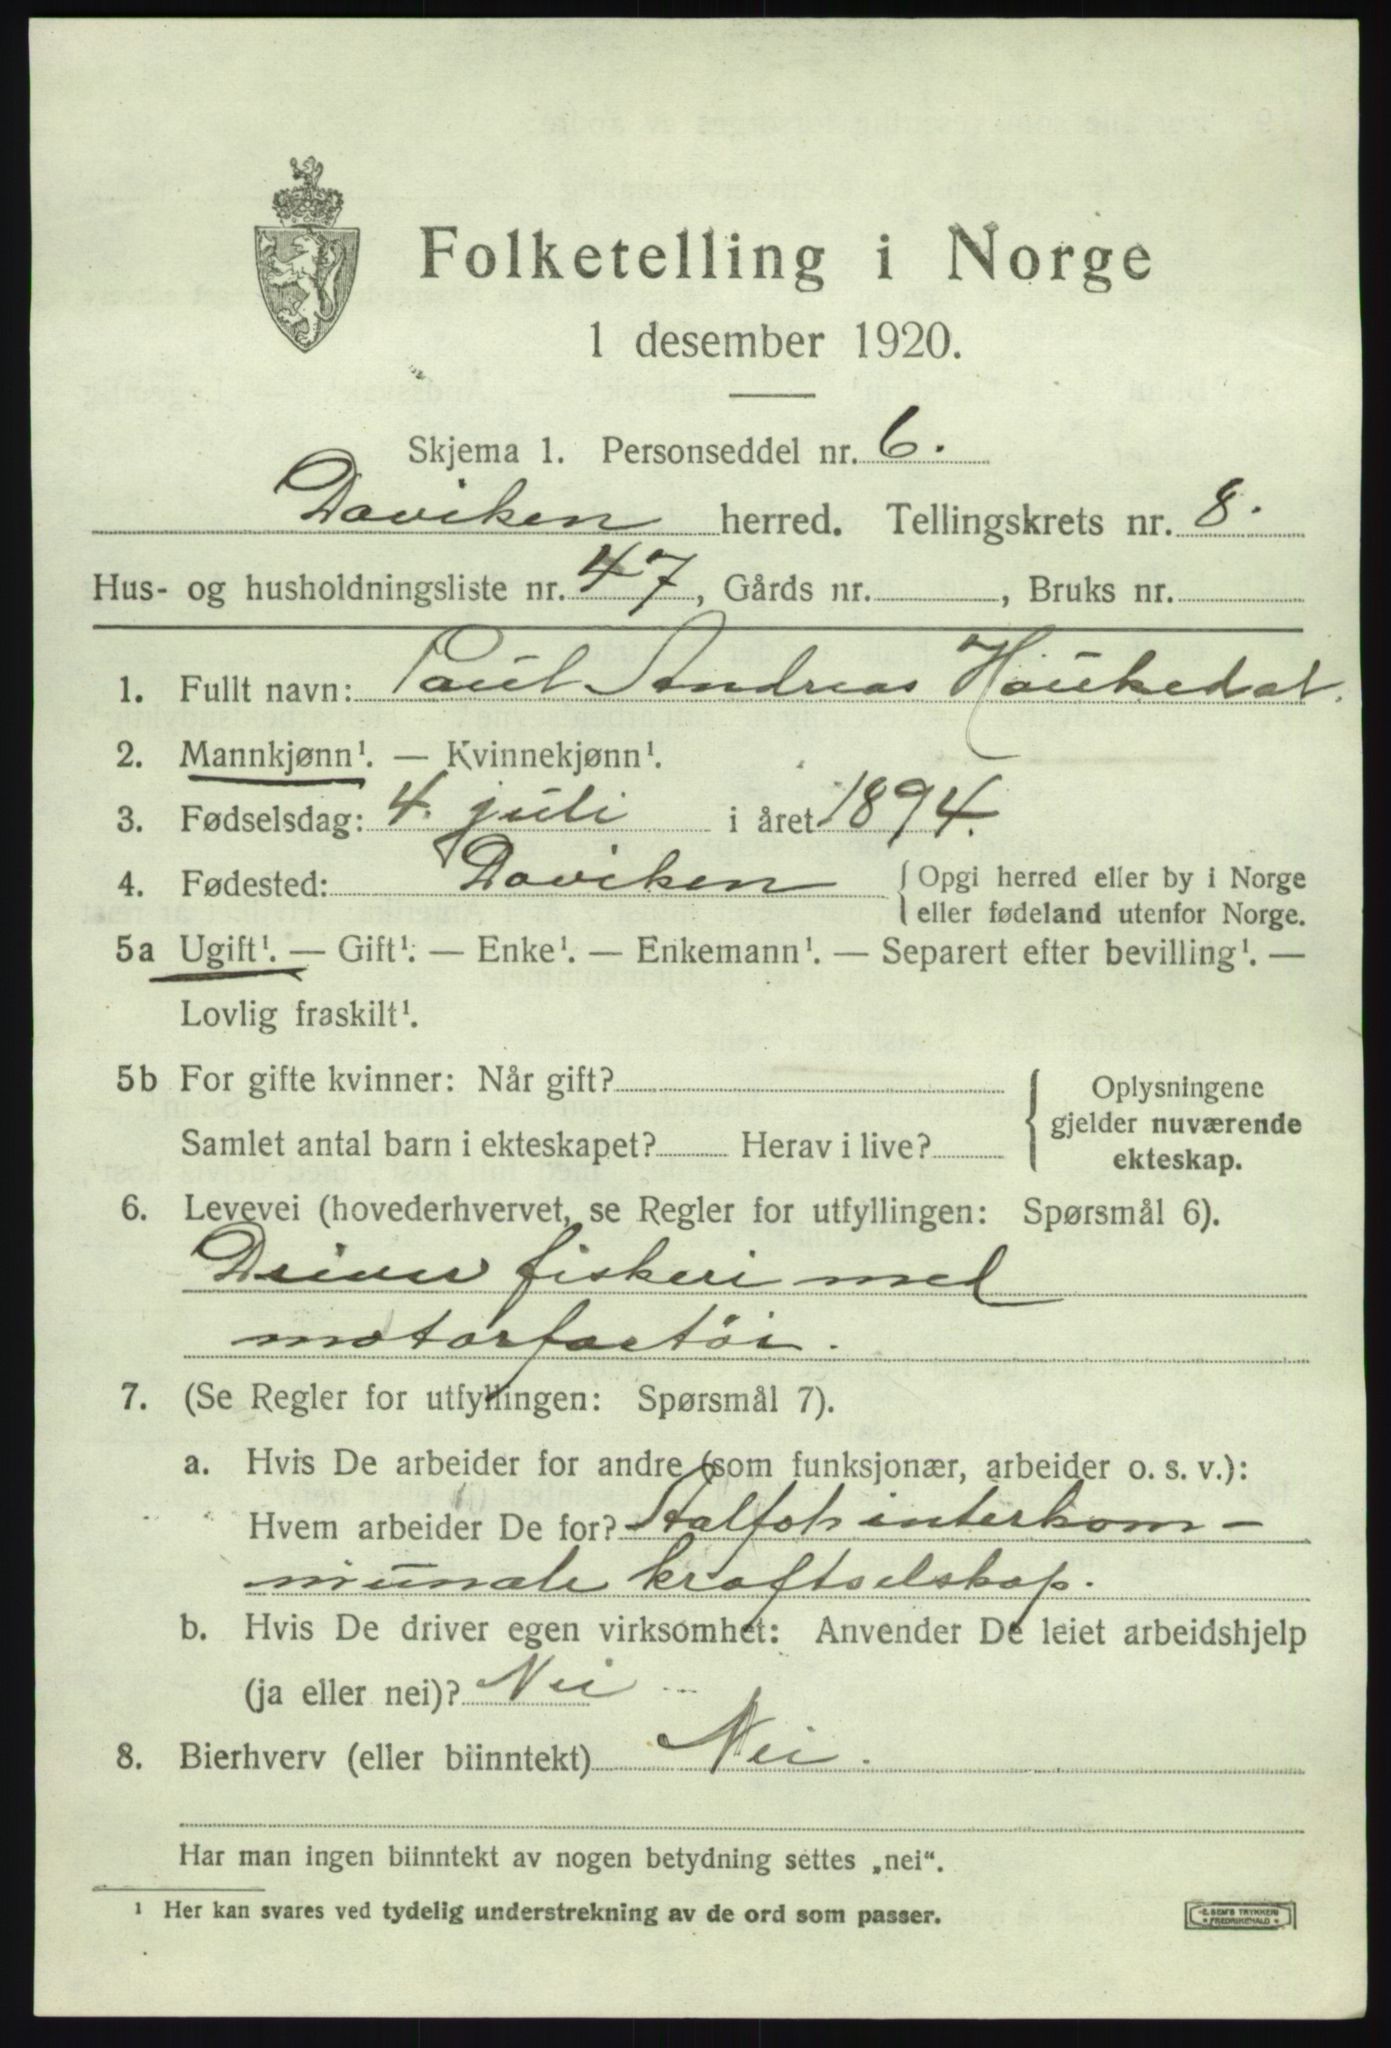 Folketelling i Norge
1 desember 1920.
Skjema 1. Personseddel nr. 6.
Daviken herred. Tellingskrets nr. 8.
Hus- og husholdningsliste nr. 47, Gårds nr. , Bruks nr.
1. Fullt navn: Paul Andreas Haukedal.
2. Mannkjønn¹. — Kvinnekjønn¹.
3. Fødselsdag: 4. juli i året 1894.
4. Fødested: Daviken { Opgi herred eller by i Norge
eller fødeland utenfor Norge.
5a Ugift¹. — Gift¹. — Enke¹. — Enkemann¹. — Separert efter bevilling¹. —
Lovlig fraskilt¹.
5b For gifte kvinner: Når gift?
Samlet antal barn i ekteskapet? Herav i live?
{ Oplysningene
gjelder nuværende
ekteskap.
6. Levevei (hovederhvervet, se Regler for utfyllingen: Spørsmål 6).
Driver fiskeri med
motorfartöi.
7. (Se Regler for utfyllingen: Spørsmål 7).
a. Hvis De arbeider for andre (som funksjonær, arbeider o. s. v.):
Hvem arbeider De for? interkom-
munale kraftselskap.
b. Hvis De driver egen virksomhet: Anvender De leiet arbeidshjelp
(ja eller nei)? Nei
8. Bierhverv (eller biinntekt) Nei.
Har man ingen biinntekt av nogen betydning settes „nei“.
¹ Her kan svares ved tydelig understrekning av de ord som passer.
E. SEM'S TRYKKERI
* FREDRIKSHALD *